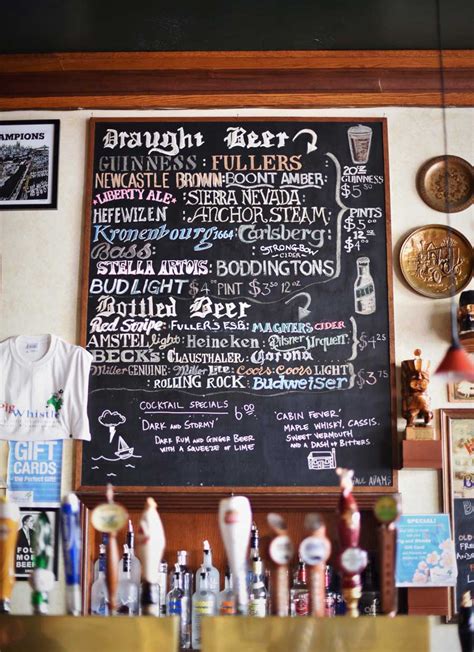 CHAMPIONS
Draught Beer
GUINNESS · FULLERS
NEWCASTLE BROWN · BOONT AMBER
"LIBERTY ALE" SIERRA NEVADA
HEFEWIZEN · ANCHOR STEAM
Kronenbourg 1664 · Carlsberg
Bass
STRONGBOW CIDER
STELLA ARTOIS · BODDINGTONS
BUD LIGHT $4 PINT $3.50 12 OZ
20 OZ
GUINNESS
$5
PINTS
$5
12 OZ
$4
$3.50
Bottled Beer
Red Stripe · FULLER'S ESB · MAGNERS CIDER
AMSTEL light · Heineken · Pilsner Urquell
BECK'S · CLAUSTHALER · Corona
Miller GENUINE · Miller Lite · Coors · COORS LIGHT
ROLLING ROCK · Budweiser
$4
$3.75
COCKTAIL SPECIALS 6.00
"DARK AND STORMY"
DARK RUM AND GINGER BEER
WITH A SQUEEZE OF LIME
"CABIN FEVER"
MAPLE WHISKY, CASSIS,
SWEET VERMOUTH
AND A DASH OF BITTERS
Pig
Whistle
GIFT
CARDS
the Perfect Gift!
FOLL
MORE
BEER
SPECIAL!
Gift Cards